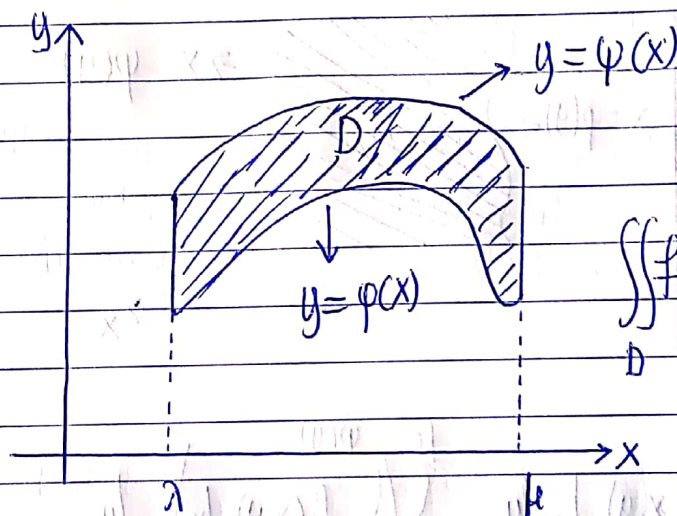 y
y = ψ(x)
D
y = φ(x)
∬f
D
x
λ μ